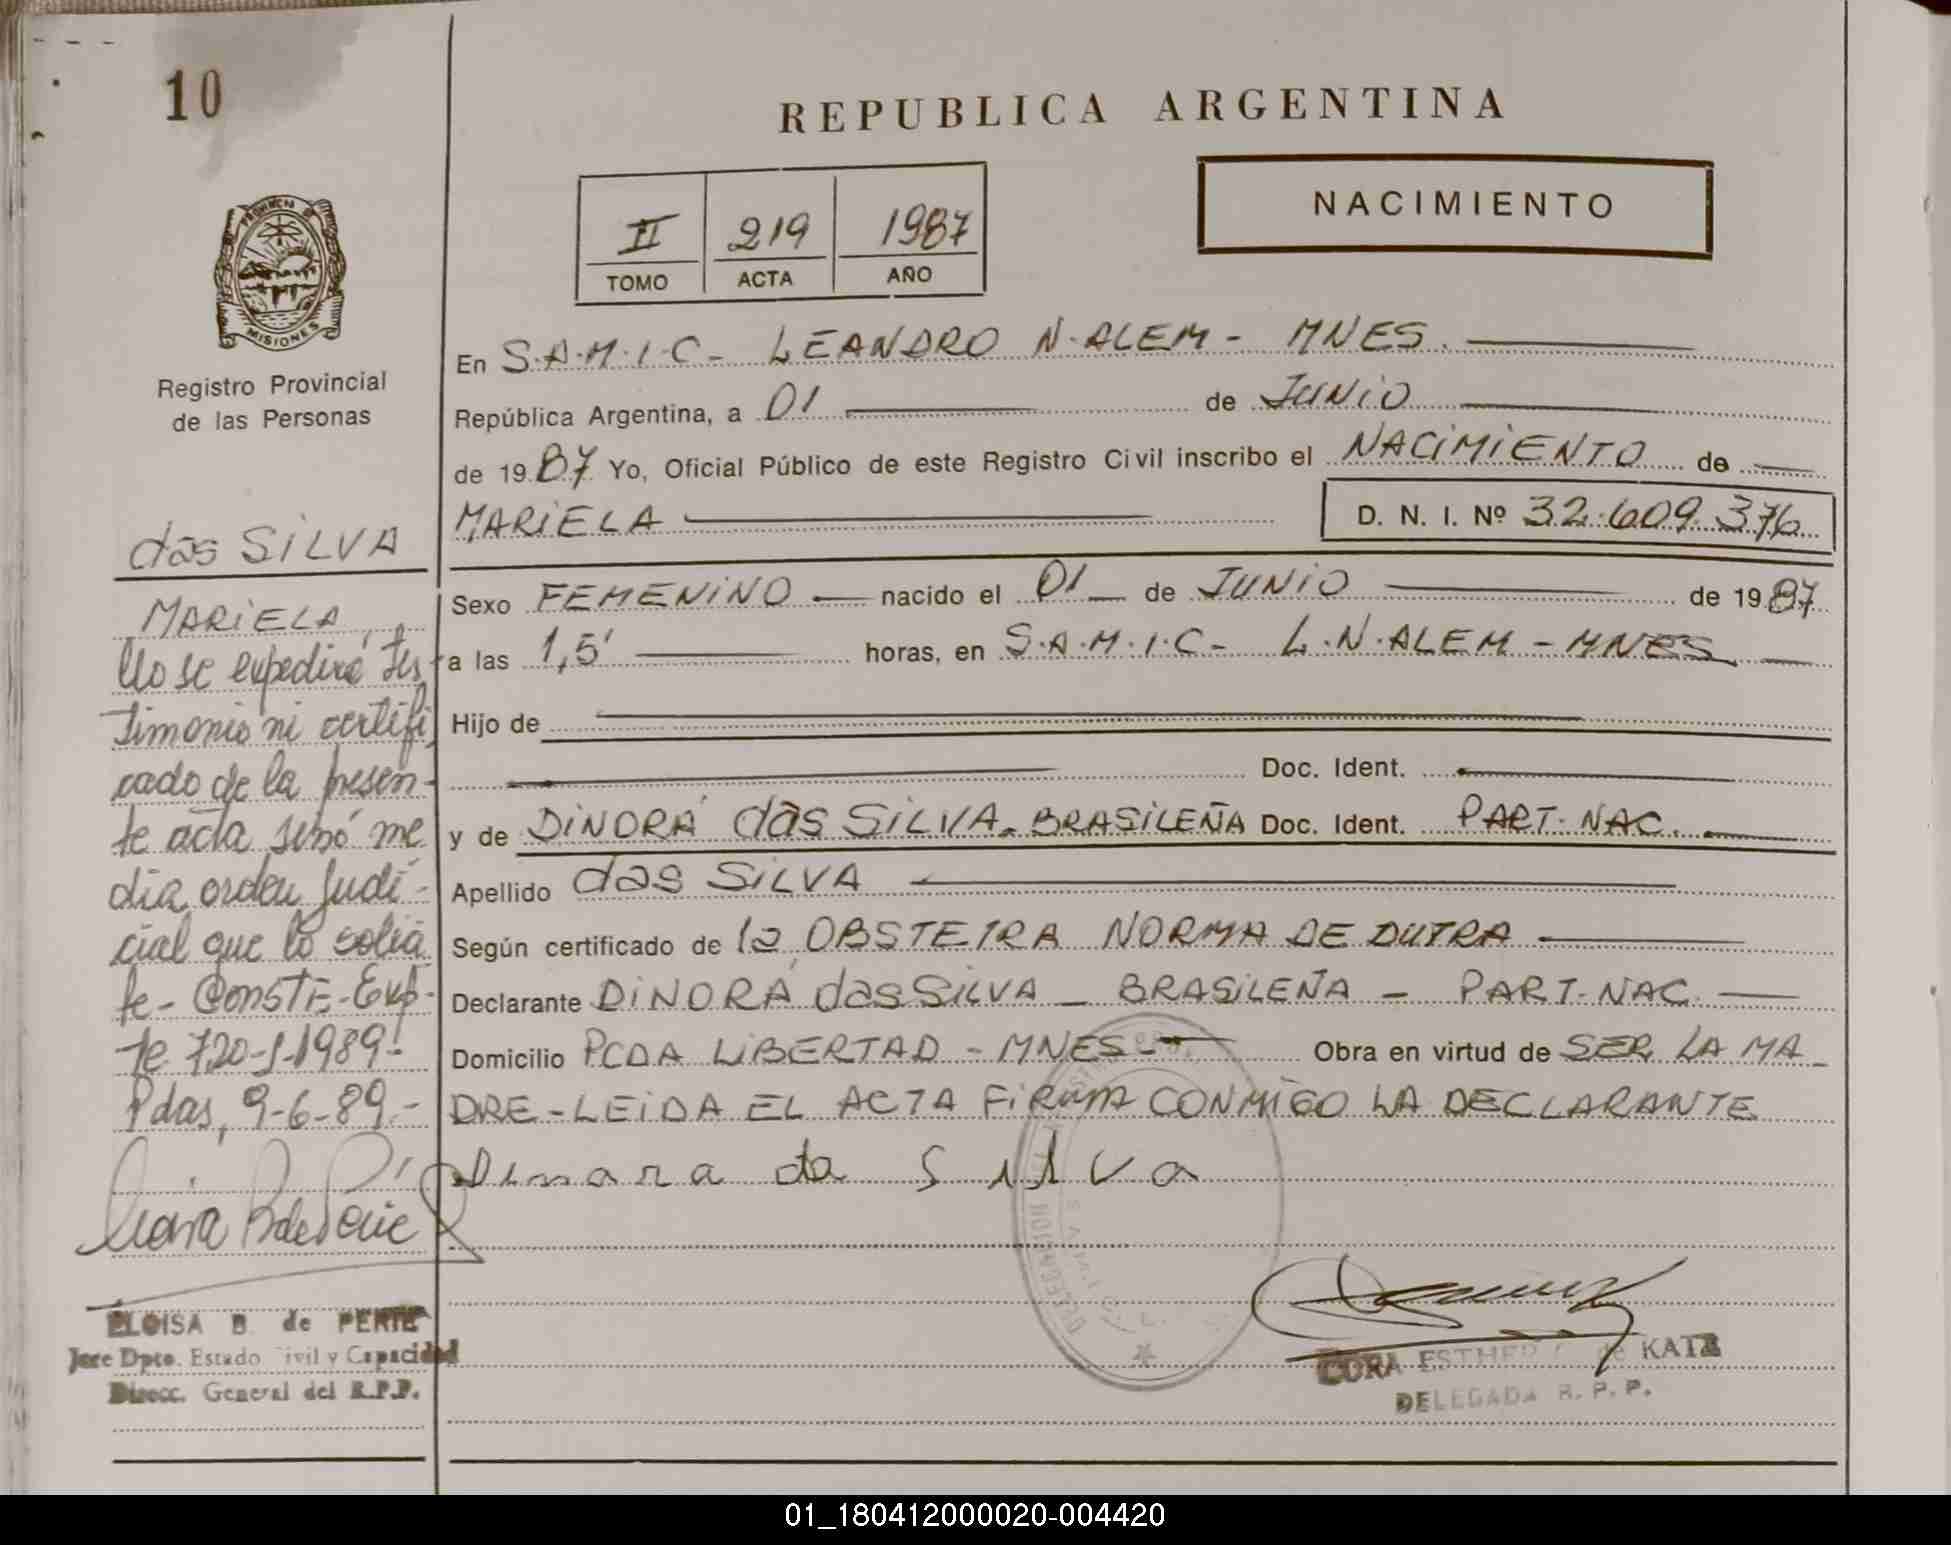 10
REPUBLICA ARGENTINA
II 219 1987
TOMO ACTA AÑO
NACIMIENTO
PROVINCIA DE
MISIONES
Registro Provincial
de las Personas
das SILVA
MARIELA
No se expedirá tes
timonio ni certifi
cado de la presen-
te acta sinó me
dia orden judi-
cial que lo solici
te - CONSTE - Exp-
te 720-S-1989-
Pdas, 9-6-89.-
ELOISA B. de PERIE
Jefe Dpto. Estado Civil y Capacidad
Direcc. General del R.P.P.
En S.A.M.I.C - LEANDRO N. ALEM - MNES.
República Argentina, a 01 de JUNIO
de 1987 Yo, Oficial Público de este Registro Civil inscribo el NACIMIENTO de
MARIELA D. N. I. Nº 32.609.376
Sexo FEMENINO nacido el 01 de JUNIO de 1987
a las 1,5' horas, en S.A.M.I.C - L.N.ALEM - MNES
Hijo de
Doc. Ident.
y de DINORÁ das SILVA - BRASILEÑA Doc. Ident. PART. NAC.
Apellido das SILVA
Según certificado de la OBSTETRA NORMA DE DUTRA
Declarante DINORÁ das SILVA - BRASILEÑA - PART. NAC.
Domicilio PCDA LIBERTAD - MNES - Obra en virtud de SER LA MA
DRE - LEIDA EL ACTA FIRMA CONMIGO LA DECLARANTE
Dinara da Silva
CORA ESTHER de KATZ
DELEGADA R. P. P.
01_180412000020-004420